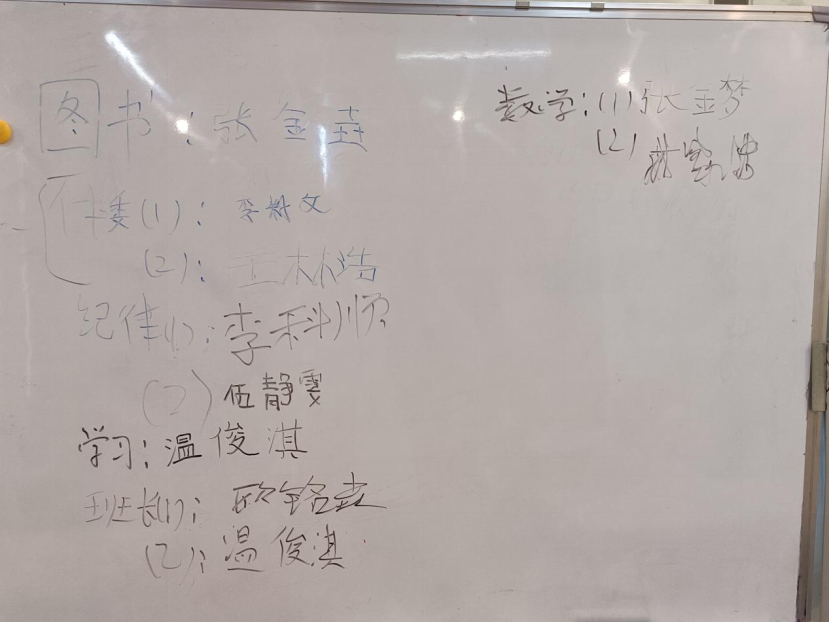 图书：张金垚
体委(1)：李
(2)：王林浩
纪律(1)：李科顺
(2)伍静雯
学习：温俊淇
班长(1)：欧铭垚
(2)：温俊淇
数学：(1)张金梦
(2)